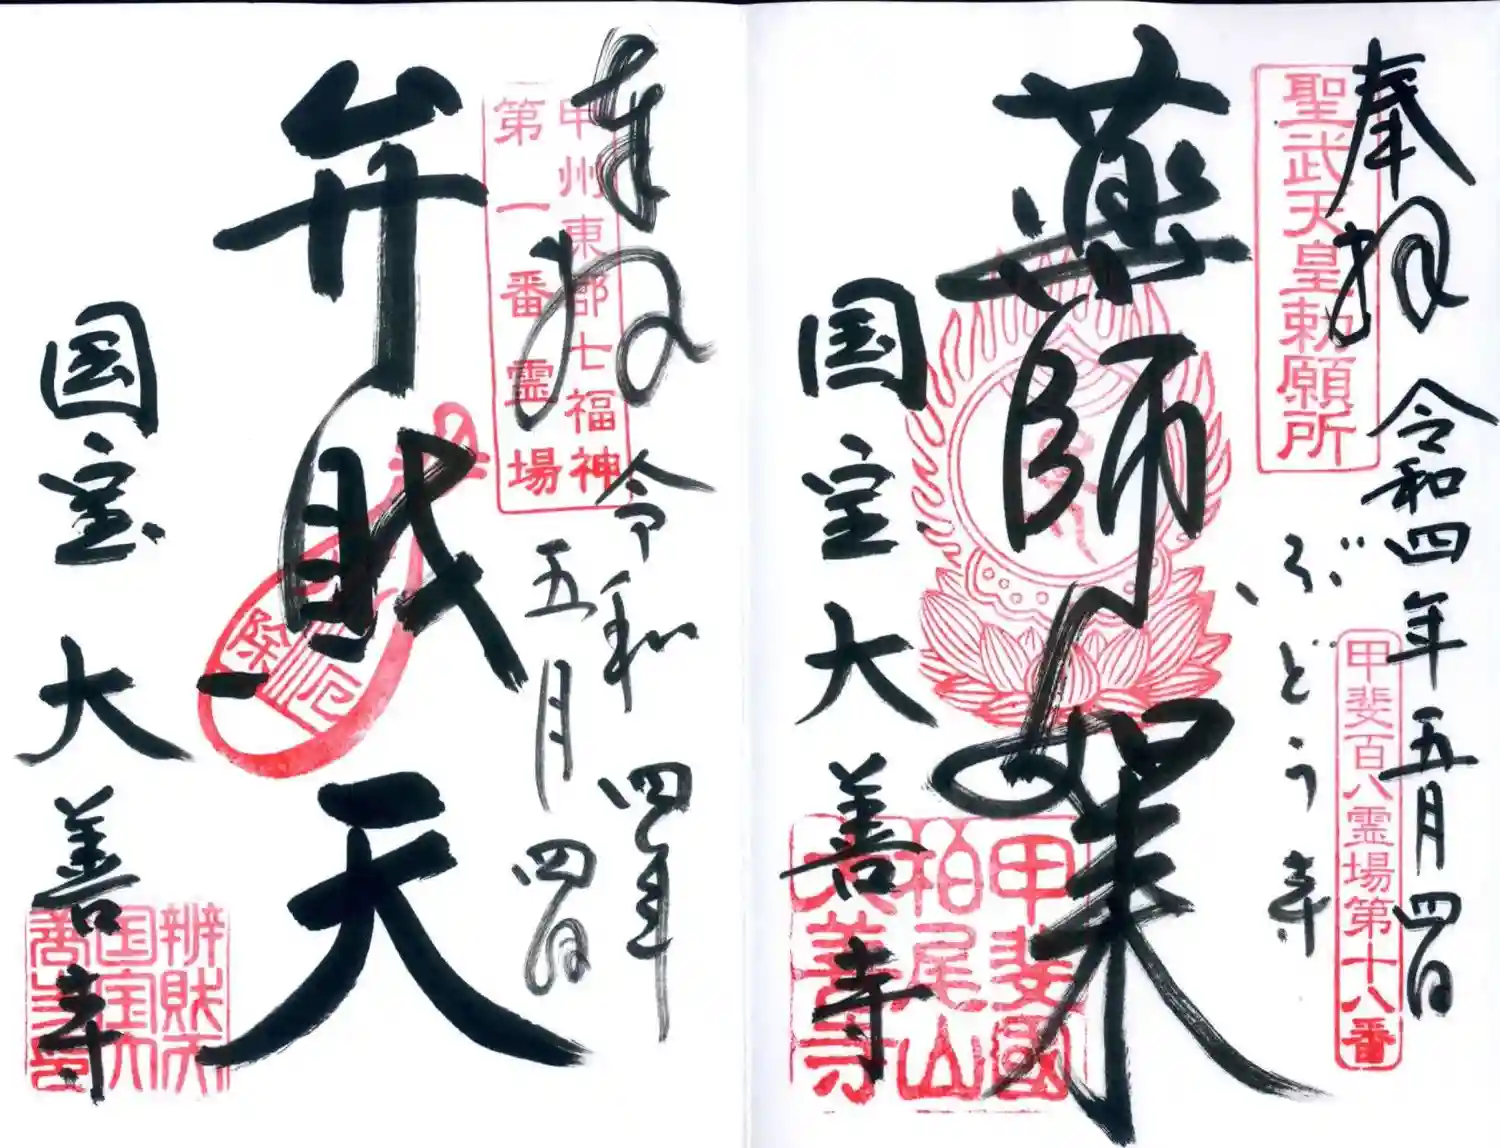 奉拝
令和四年五月四日
聖武天皇勅願所
甲斐百八霊場第十八番
ぶどう寺
薬師如来
国宝大善寺
甲斐國
柏尾山
大善寺
奉拝
令和四年
五月四日
甲州東郡七福神
第一番霊場
弁財天
除厄
国宝大善寺
辨財天
国宝大
善寺印